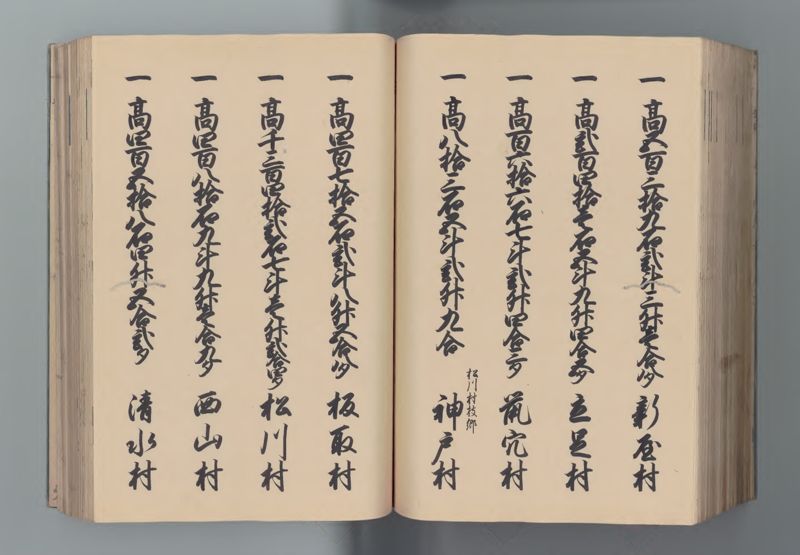 一 高五百三拾九石弐斗三升壱合八夕 新屋村
一 高弐百四拾壱石五斗九升四合五夕 立足村
一 高百六拾六石七斗弐升四合三夕 鼠穴村
一 高八拾三石五斗弐升九合 松川村枝郷 神戸村
一 高四百七拾五石弐斗八升五合八夕 板取村
一 高千三百四拾弐石七斗壱升弐合四夕 松川村
一 高四百八拾石九斗九升壱合九夕 西山村
一 高四百五拾八石四升五合弐夕 清水村